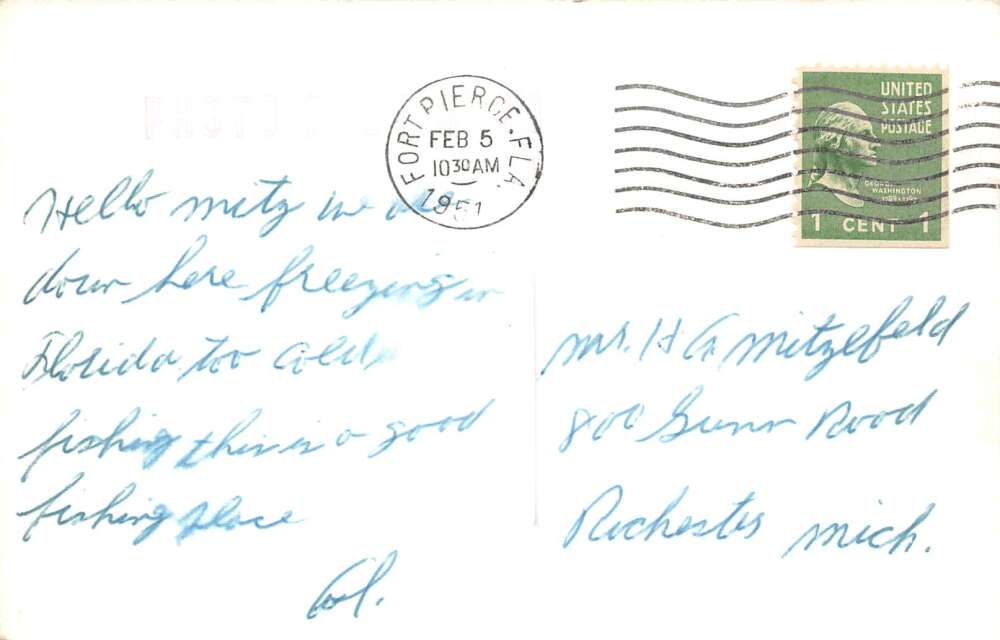 FORT PIERCE. FLA.
FEB 5
10 30 AM
1951
UNITED
STATES
POSTAGE
GEORGE
WASHINGTON
1 CENT 1
Hello mitz we are
down here freezing in
Florida too cold
fishing this is a good
fishing place
Al.
Mr. H G Mitzelfeld
800 Gunn Rood
Rochester Mich.